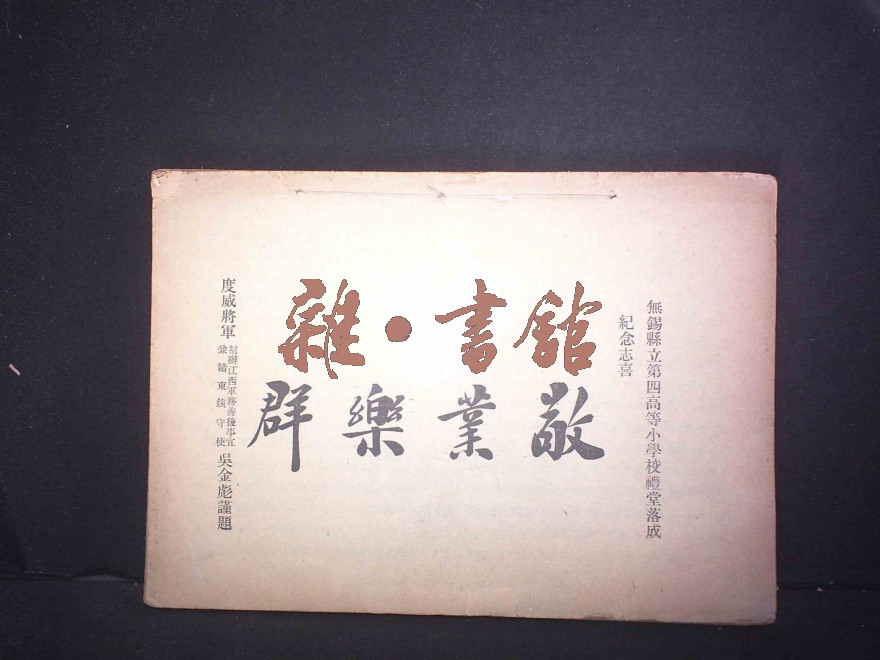 無錫縣立第四高等小學校禮堂落成
紀念志喜
雜·書館
敬業樂群
度威將軍幫辦江西軍務善後事宜兼贛東鎮守使吳金彪謹題